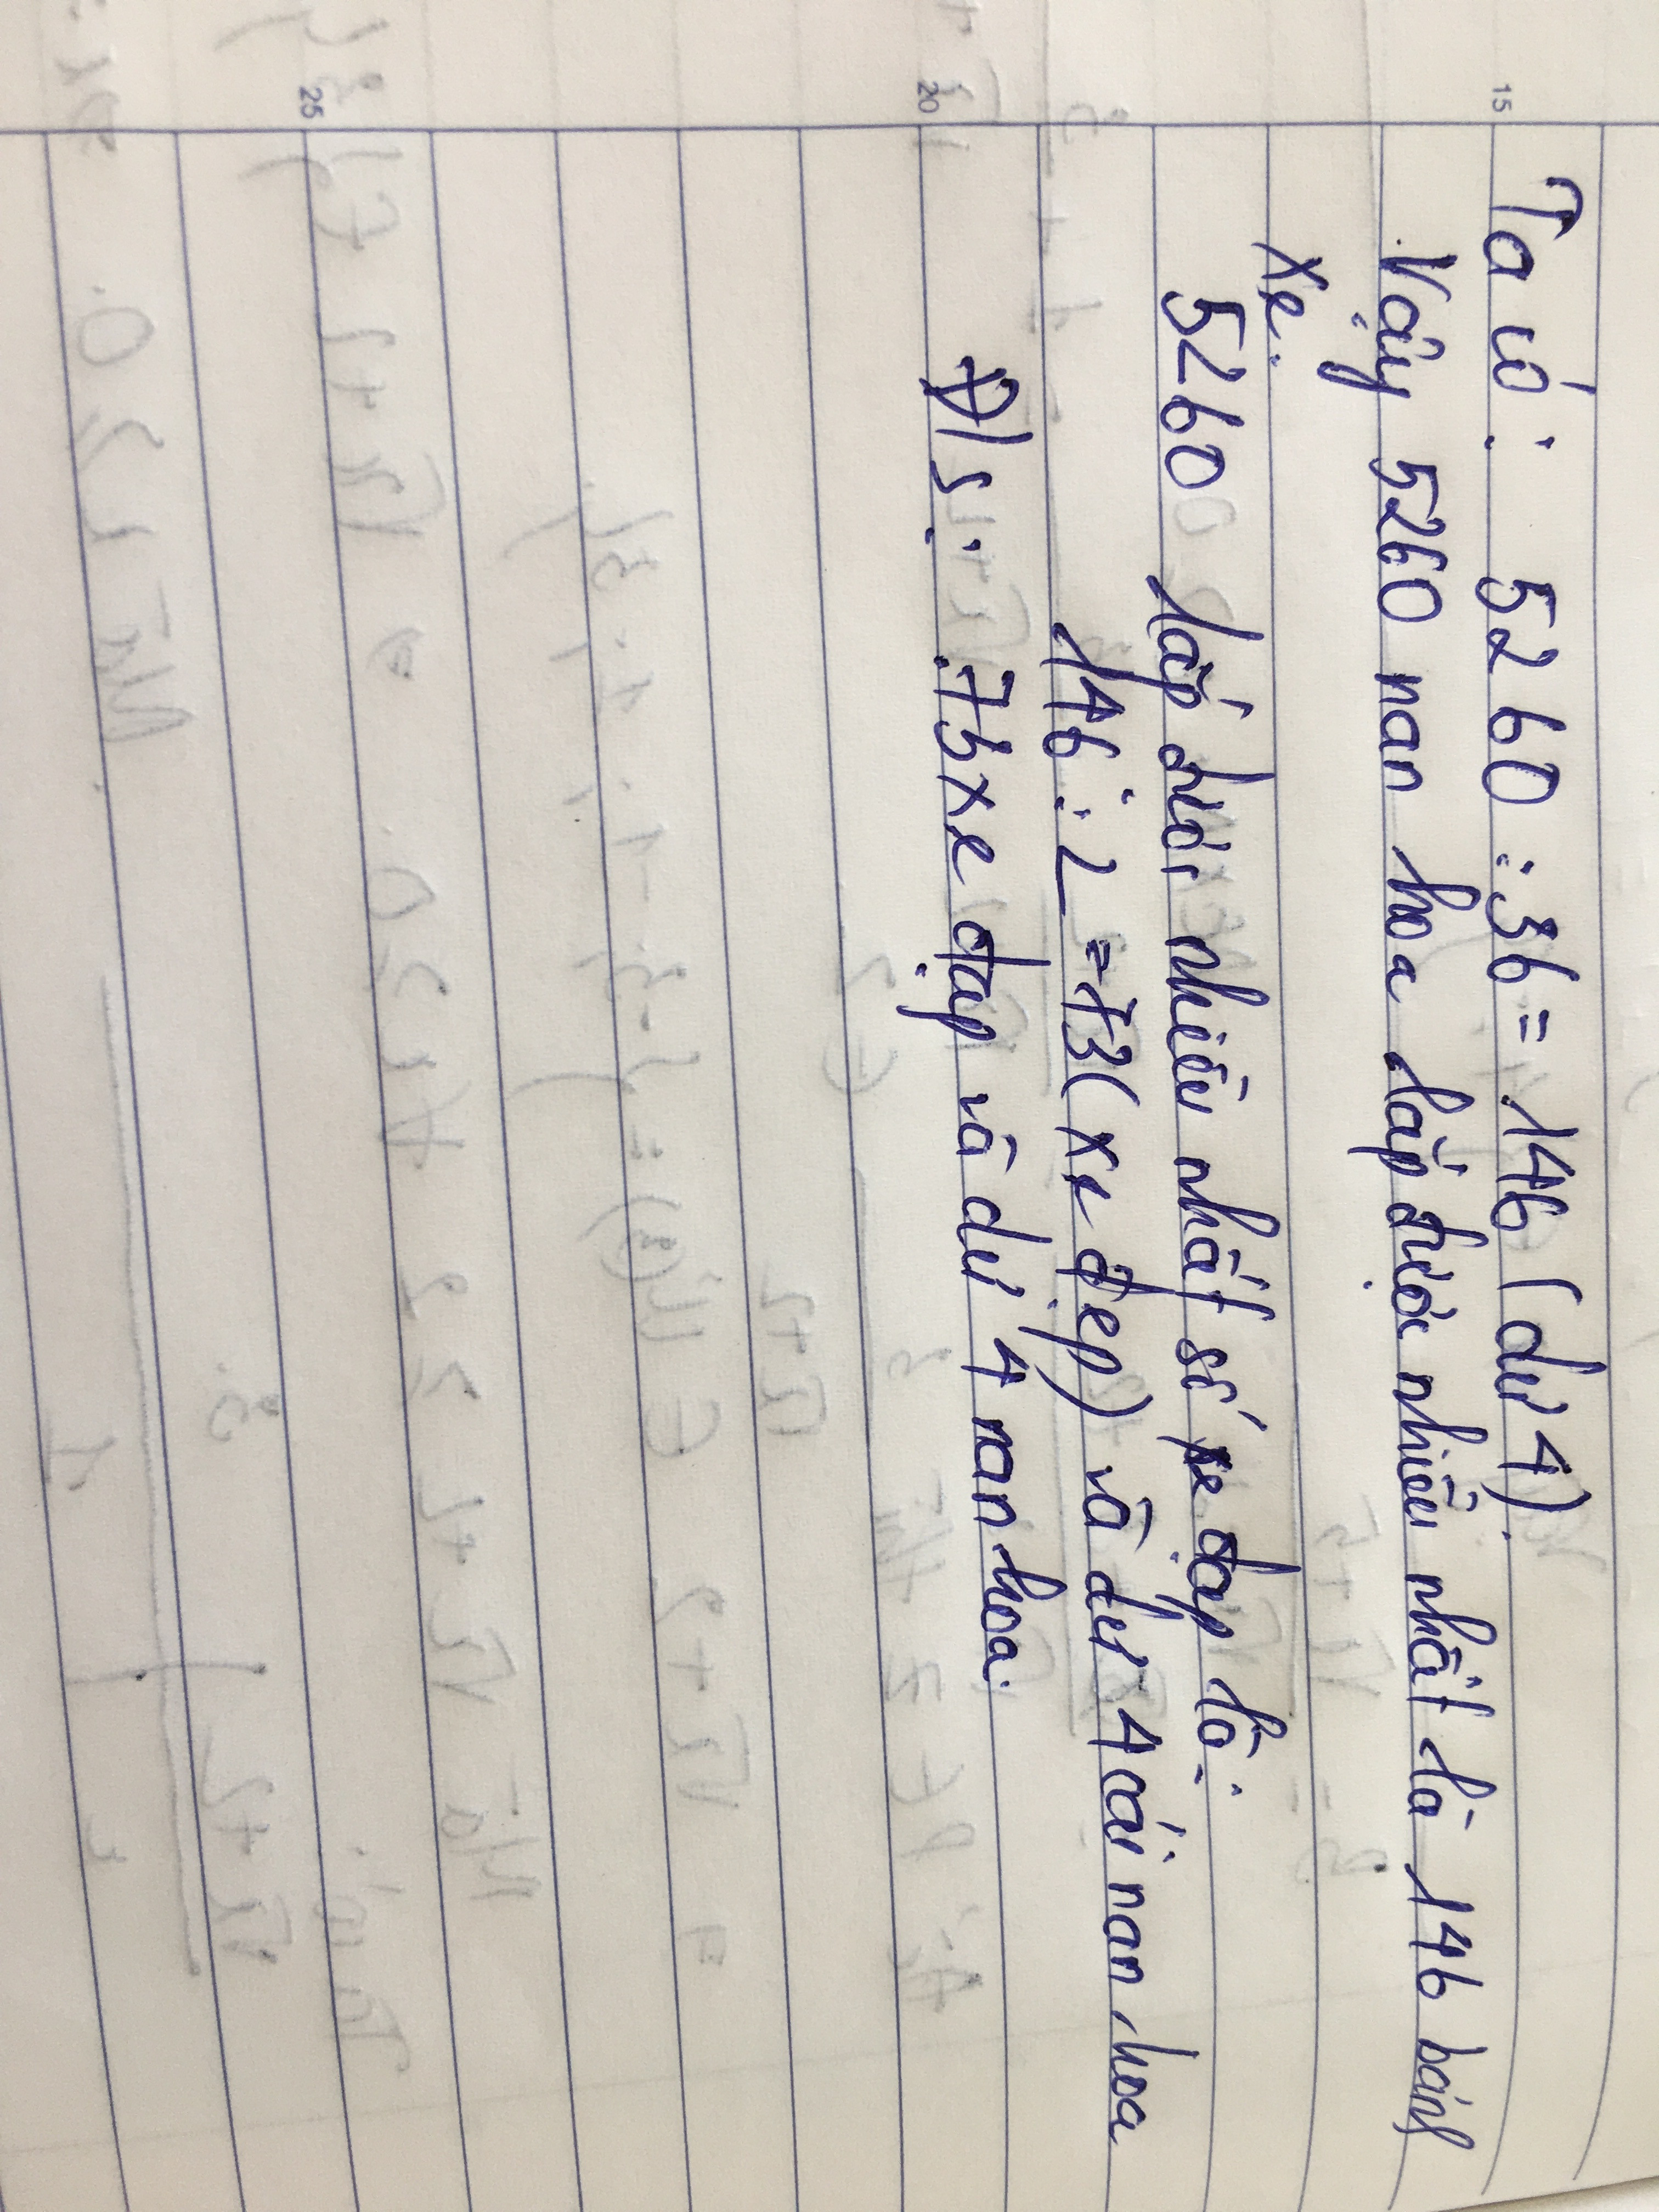 Ta có: 5260 : 36 = 146 (dư 4).
Vậy 5260 nan hoa lắp được nhiều nhất là 146 bánh
xe.
5260 lắp được nhiều nhất số xe đạp là:
146 : 2 = 73 (xe đẹp) và dư 4 cái nan hoa
Đ/s: 73 xe đạp và dư 4 nan hoa.
15
20
25